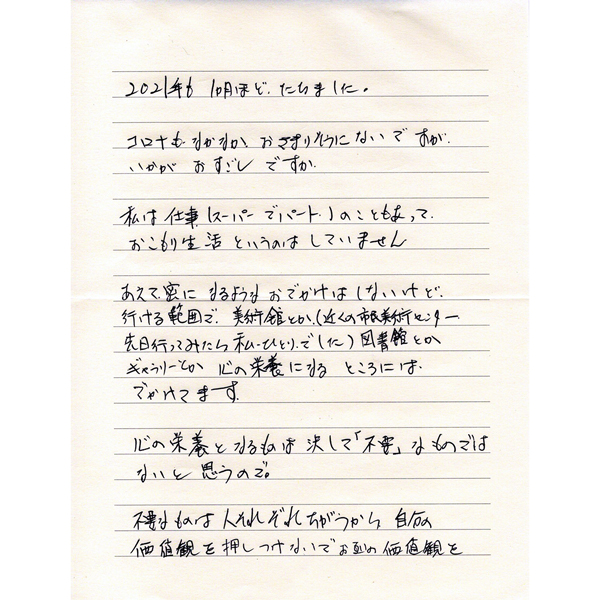 2021年も 1か月ほど、たちました。
コロナも なかなか おさまりそうにないですが、
いかが おすごし ですか。
私は 仕事(スーパー でパート)のこともあって、
おこもり生活 というのは していません
あえて、密に なるような おでかけは しないけど、
行ける範囲で、美術館とか、(近くの市民美術センター
先日行ってみたら 私ひとり、でした) 図書館とか
ギャラリーとか 心の栄養になる ところには
でかけてます。
心の栄養となるものは 決して「不要」なものでは
ないと 思うので。
不要なものは 人それぞれちがうから 自分の
価値観を押しつけないでお互の価値観を